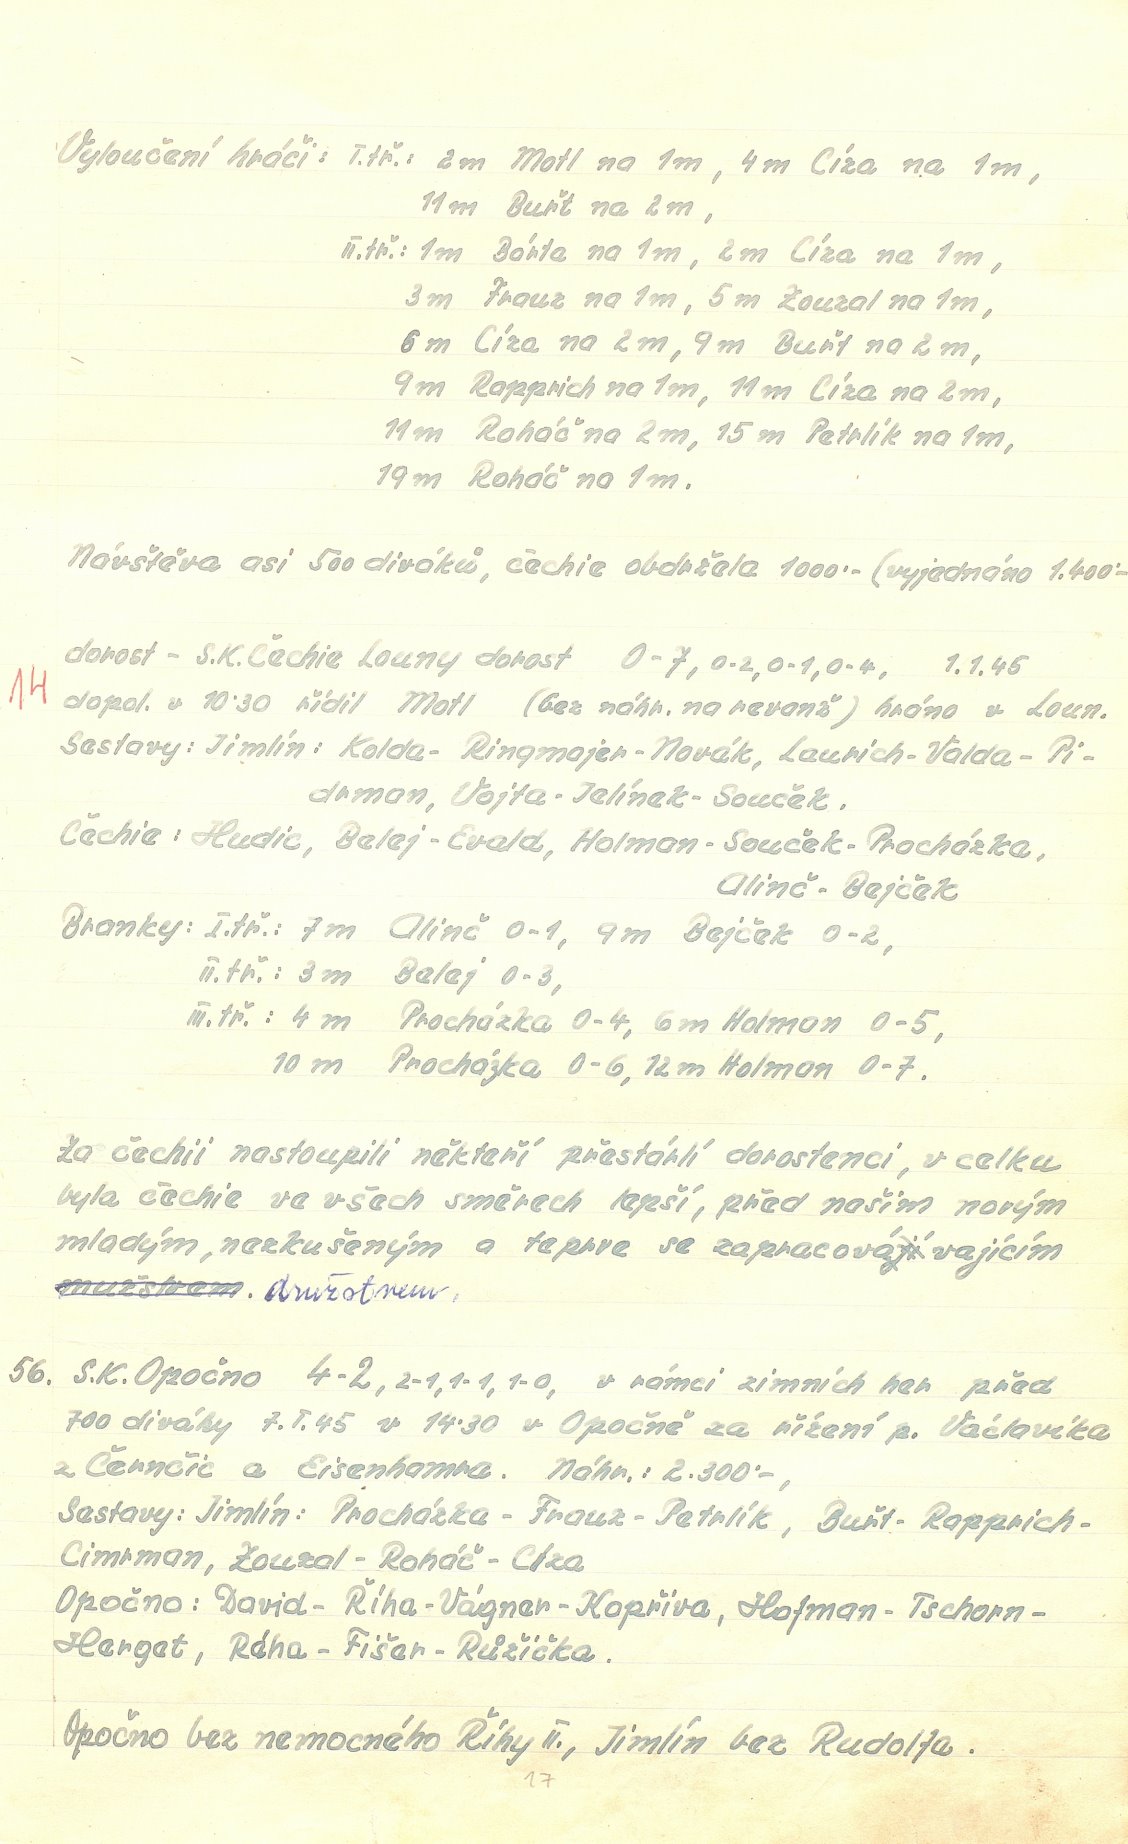 Vyloučení hráči: I.tř.: 2m Motl na 1m, 4m Cíza na 1m,
11m Buřt na 2m,
II.tř.: 1m Bórta na 1m, 2m Cíza na 1m,
3m Frauz na 1m, 5m Zouzal na 1m,
6m Cíza na 2m, 9m Buřt na 2m,
9m Rapprich na 1m, 11m Cíza na 2m,
11m Roháč na 2m, 15m Petrlík na 1m,
19m Roháč na 1m.
Návštěva asi 500 diváků, čechie obdržela 1000·- (vyjednáno 1.400·-
dorost - S.K.Čechie Louny dorost 0-7, 0-2, 0-1, 0-4, 1.1.45
14 dopol. v 10·30 řídil Motl (bez náhr. na revanž) hráno v Loun.
Sestavy: Jimlín: Kolda- Ringmajer-Novák, Laurich-Valda-Pi-
drman, Vojta-Jelínek-Souček.
Čechie: Hudic, Balej-Evald, Holman-Souček-Procházka,
Alinč-Bejček
Branky: I.tř.: 7m Alinč 0-1, 9m Bejček 0-2,
II.tř.: 3m Balej 0-3,
III.tř.: 4m Procházka 0-4, 6m Holman 0-5,
10m Procházka 0-6, 12m Holman 0-7.
Za čechii nastoupili někteří přestárlí dorostenci, v celku
byla čechie ve všech směrech lepší, před naším novým
mladým, nezkušeným a teprve se zapracovávajícím
mužstvem. družstvem.
56. S.K.Opočno 4-2, 2-1, 1-1, 1-0, v rámci zimních her před
700 diváky 7.I.45 v 14·30 v Opočně za řízení p. Václavíka
z Černčic a Eisenhamra. Náhr.: 2.300·-,
Sestavy: Jimlín: Procházka-Frauz-Petrlík, Buřt-Rapprich-
Cimrman, Zouzal-Roháč-Cíza
Opočno: David-Říha-Vágner-Kopřiva, Hofman-Tschorn-
Herget, Ráha-Fišer-Růžička.
Opočno bez nemocného Říhy II., Jimlín bez Rudolfa.
17